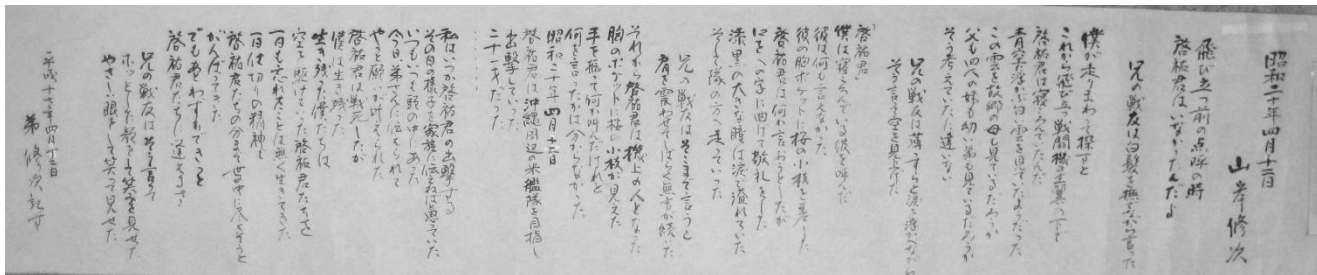 昭和二十年四月十二日
山岸修次
飛び立つ前の点呼の時
啓祐君はいなかったんだよ
兄の戦友は白髪を撫ぜながら言った
僕が走りまわって探すと
これから飛び立つ戦闘機の主翼の下で
啓祐君は寝ころんでいたんだ
青空に浮かぶ白い雲を見ていたようだった
この雲を故郷の母も見ているだろうか
父も四人の妹も幼い弟も見ているだろうか
そう考えていたに違いない
兄の戦友は薄っすらと涙を浮かべながら
そう言って空を見上げた
啓祐君
僕は寝ころんでいる彼を呼んだ
彼は何も言えなかった
彼の胸ポケットに桜の小枝を差した
啓祐君は何か言おうとしたが
口をへの字に曲げて敬礼をした
漆黒の大きな瞳は涙で溢れていた
そして隊の方へ走っていった
兄の戦友はそこまで言うと
肩を震わせてしばらく無言が続いた
それから啓祐君は機上の人となった
胸のポケットに桜の小枝が見えた
手を振って何か叫んだけれど
何を言ったかは分からなかった
昭和二十年四月十二日
啓祐君は沖縄周辺の米艦隊を目指し
出撃していった
二十一才だった
私はいつか啓祐君の出撃する
その日の様子を家族に伝えねばと思っていた
いつもいつも頭の中にあった
今日弟さんに伝えられて
やっと願いが叶えられた
啓祐君は戦死したが
僕は生き残った
生き残った僕たちは
空を駆けていった啓祐君たちを
一日も忘れたことは無く生きてきた
一日一日仕切りの精神で
啓祐君たちの分まで世の中に尽くそうと
がんばってきた
でもあわずもできっと
啓祐君たちに逢えるさ
兄の戦友はそう言って
ホッとした顔をして笑顔を見せた
やさしい眼をして笑って見せた
平成十七年四月十二日
弟 修次記す